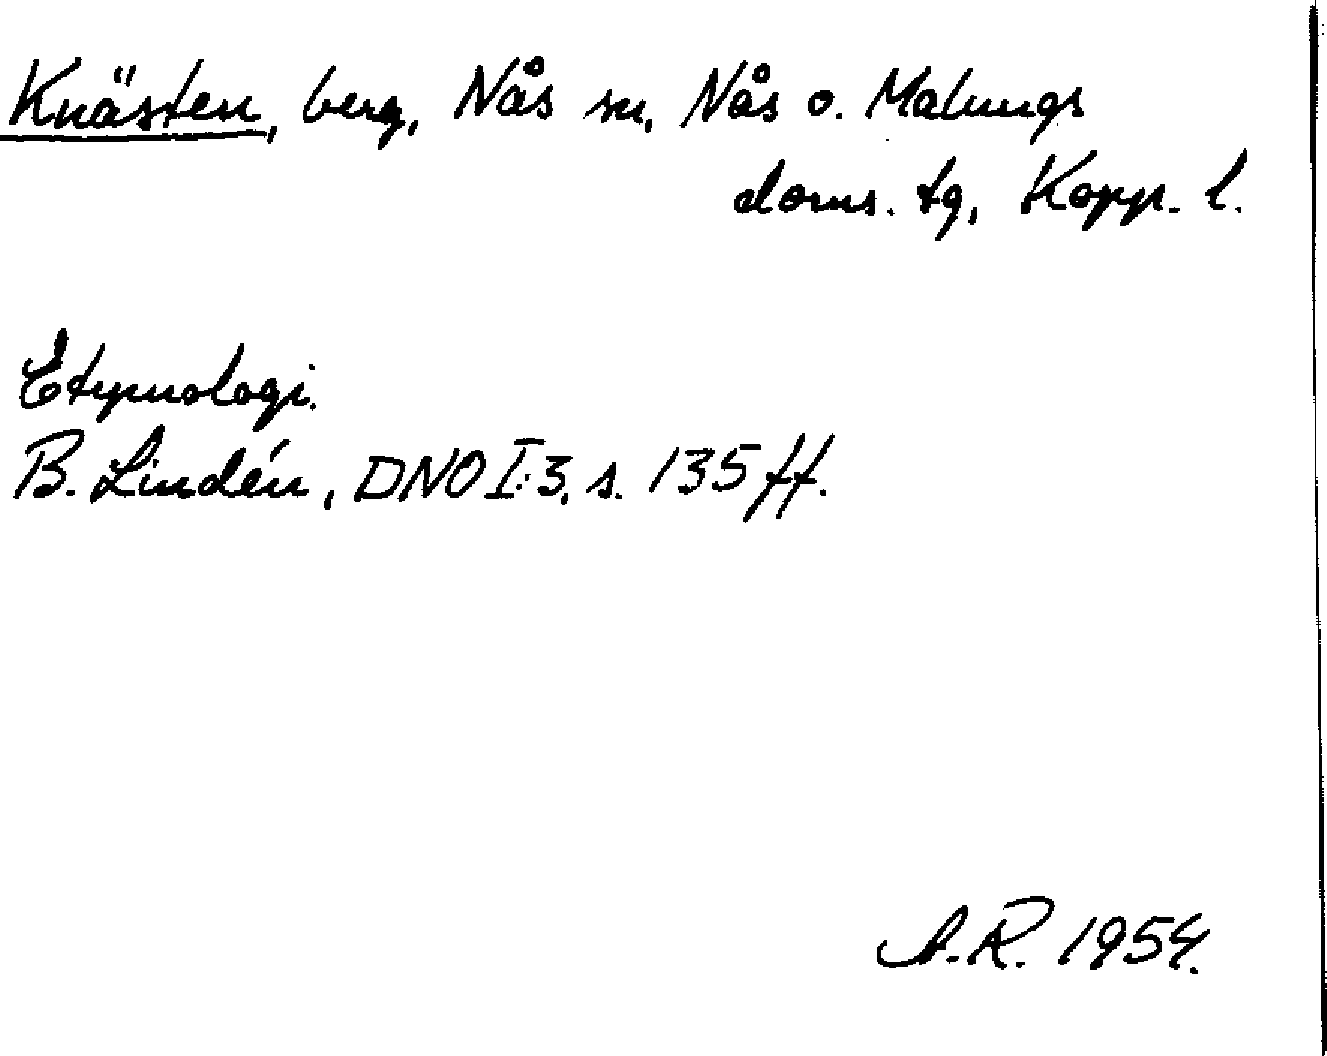 Knästen, berg, Nås sn, Nås o. Malungs
doms. tg, Kopp. l.
Etymologi.
B. Lindén, DNO I:3, s. 135 ff.
A.R. 1954.